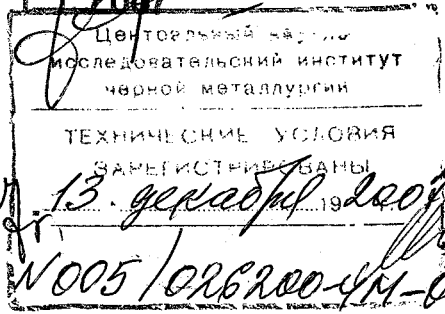 Центральный научно
исследовательский институт
черной металлургии
ТЕХНИЧЕСКИЕ УСЛОВИЯ
ЗАРЕГИСТРИРОВАНЫ
13. декабря 19 2007
N 005/026200-